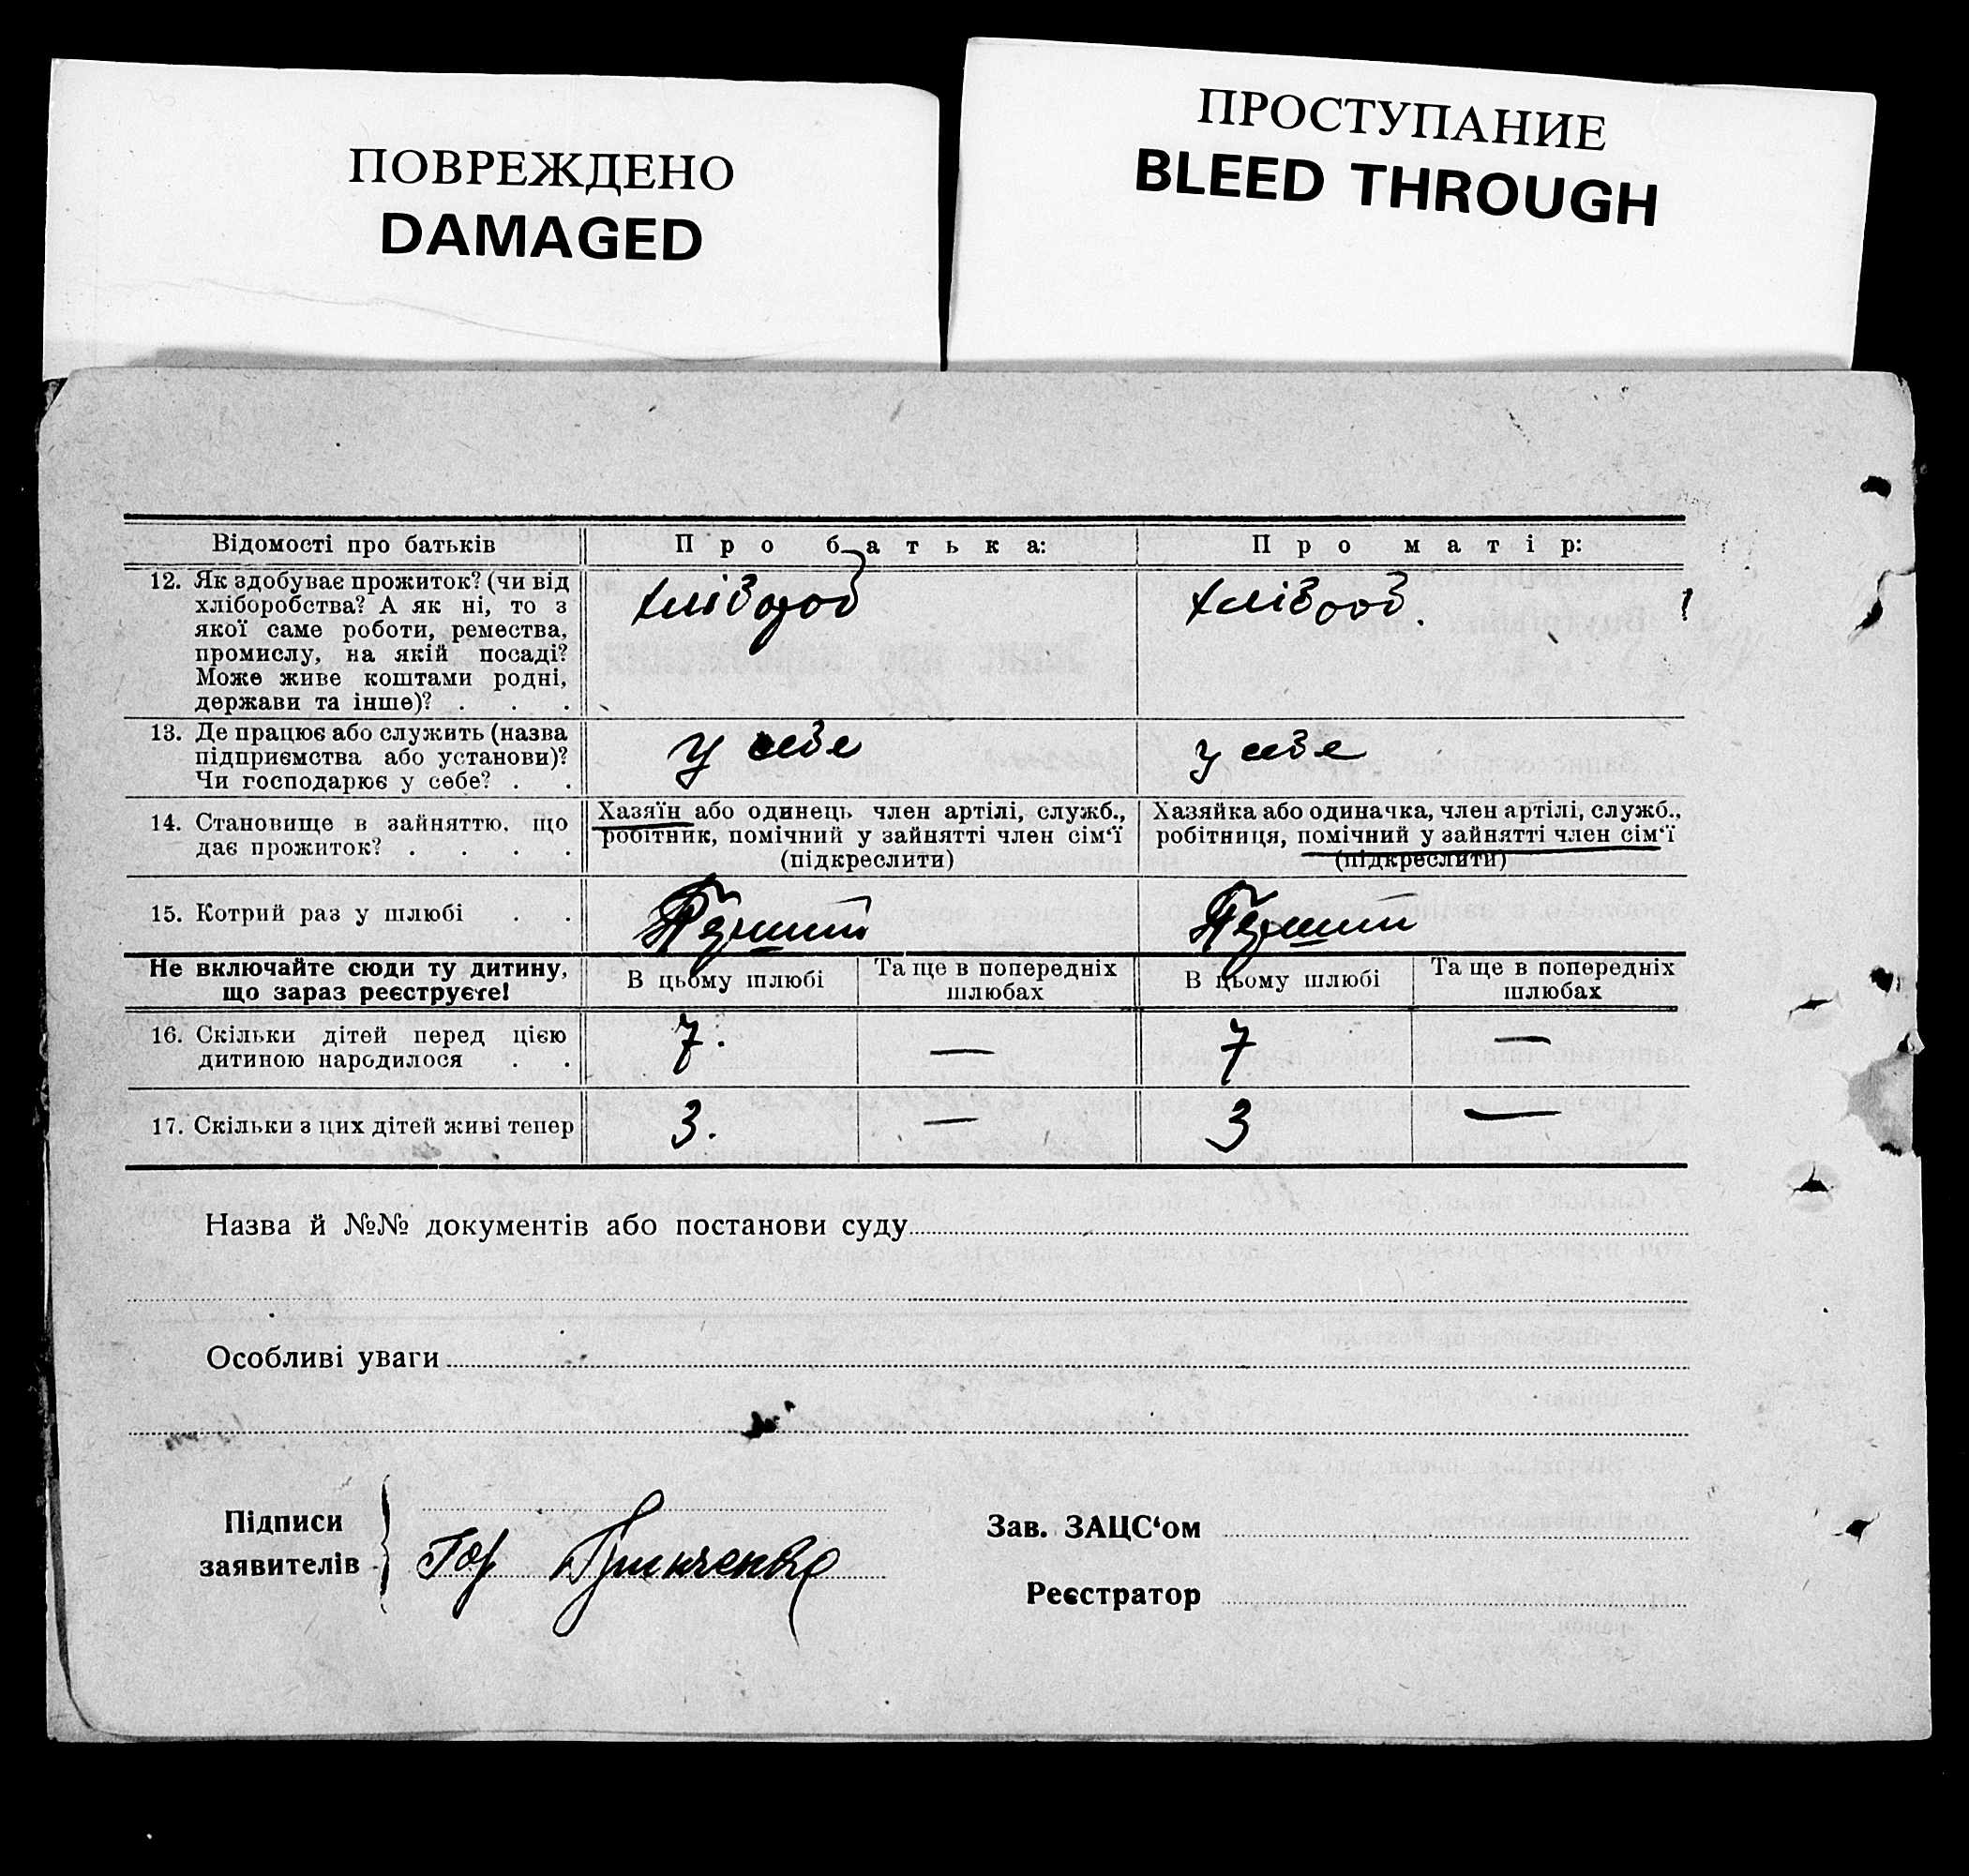 ПОВРЕЖДЕНО
DAMAGED
ПРОСТУПАНИЕ
BLEED THROUGH
Відомості про батьків
Про батька:
Про матір:
12. Як здобуває прожиток? (чи від
хліборобства? А як ні, то з
якої саме роботи, ремества,
промислу, на якій посаді?
Може живе коштами родні,
держави та інше)? . . .
хлібороб
хлібороб.
13. Де працює або служить (назва
підприємства або установи)?
Чи господарює у себе? . .
у себе
у себе
14. Становище в зайняттю, що
дає прожиток? . . . .
Хазяїн або одинець, член артілі, служб.,
робітник, помічний у зайнятті член сім‘ї
(підкреслити)
Хазяйка або одиначка, член артілі, служб.,
робітниця, помічний у зайнятті член сім‘ї
(підкреслити)
15. Котрий раз у шлюбі . .
Перший
Перший
Не включайте сюди ту дитину,
що зараз реєструєте!
В цьому шлюбі
Та ще в попередніх
шлюбах
В цьому шлюбі
Та ще в попередніх
шлюбах
16. Скільки дітей перед цією
дитиною народилося . .
7.
—
7
—
17. Скільки з цих дітей живі тепер
3.
—
3
—
Назва й №№ документів або постанови суду
Особливі уваги
Підписи
заявителів
Гринченко
Зав. ЗАЦС‘ом
Реєстратор